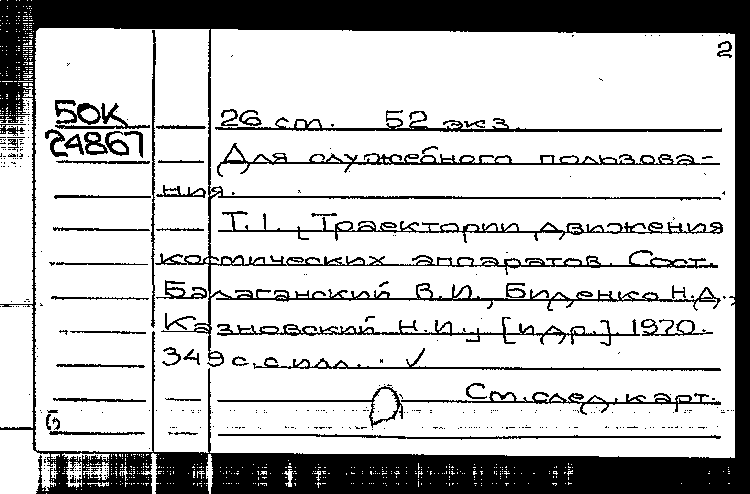 2
50К
24867
26 см. 52 экз.
Для служебного пользова-
ния.
Т. 1. Траектории движения
космических аппаратов. Сост.
Балаганский В.И., Биденко Н.Д.,
Казновский Н.И., [и др.] 1970.
349 с. с илл. ✓
См. след. карт.
6